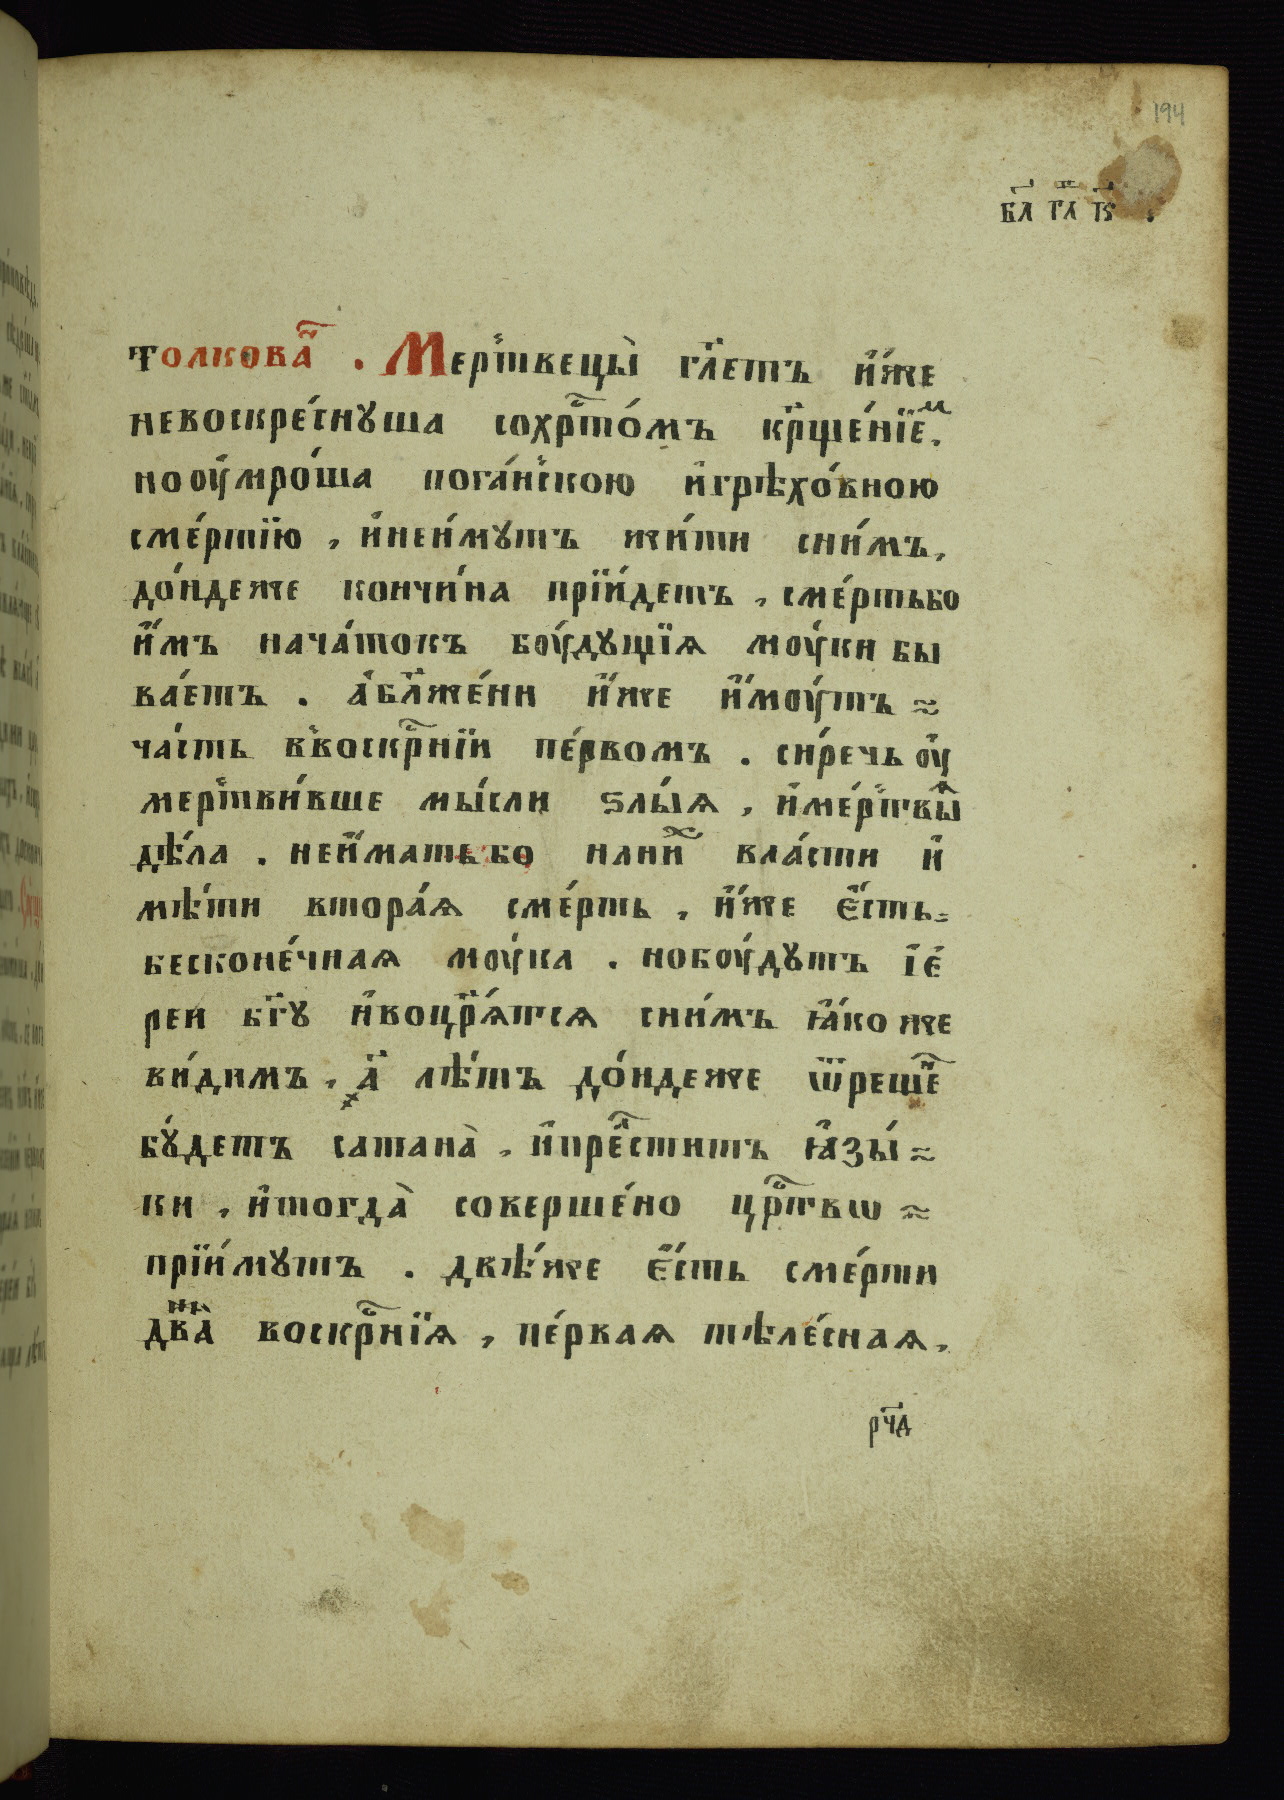 194
толкова́нїе . Мерⷭ҇твецы̀ гл҃етъ и҆̀же
невоскре́снꙋша сохрⷭ҇то́мъ кр҃ще́нїеⷨ,
ноѹ҆мро́ша пога́нскою и҆грѣхо́вною
сме́ртїю , и҆неи́мꙋтъ жи́ти сни́мъ,
до́ндеже кончи́на прїи́детъ , сме́ртьбо
и҆́мъ нача́токъ бѹ́дꙋщїѧ мѹ́ки бы
ва́етъ . а҆бл҃же́ни и҆̀же и҆́мѹтъ ≈
ча́сть в̾воскрⷭ҇нїи пе́рвомъ . си́речь ѹ҆
мерⷭ҇тви́вше мы́сли ѕлы́ѧ , и҆ме́рⷭ҇твыѧ
дѣ́ла . неи҆́матьбо наниⷯ вла́сти и҆
мѣ́ти втора́ѧ сме́рть , и҆̀же є҆́сть=
бесконе́чнаѧ мѹ́ка . нобѹ́дꙋтъ і҆є
реи бг҃ꙋ и҆воцр҃ѧ́тсѧ сни́мъ ꙗ҆́коже
ви́димъ , а҃ лѣ́тъ до́ндеже ѿреше́нъ
бꙋ́детъ сатана̀ , и҆прелⷭ҇титъ ꙗ҆зы́ ≈
ки , и҆тогда̀ соверше́но црⷭ҇твѡ ≈
прїи́мꙋтъ . двѣ́же є҆́сть сме́рти
два̀ воскрⷭ҇нїѧ , пе́рваѧ тѣле́снаѧ,
рч҃д